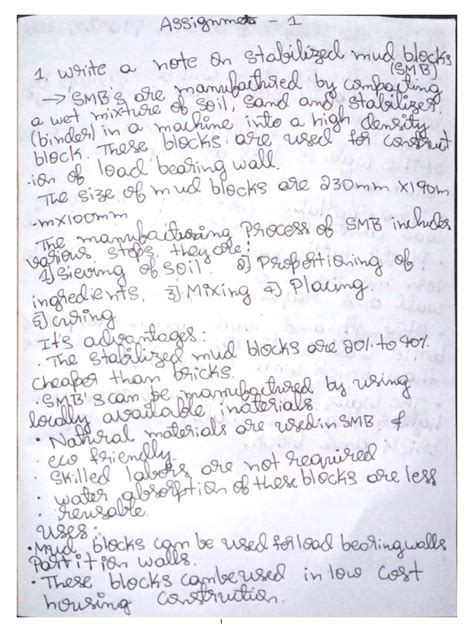 Assignmet - 1
1. write a note on stabilized mud blocks
(SMB)
→ SMB's are manufactured by compacting
a wet mixture of soil, sand and stabilizer
(binder) in a machine into a high density
block. These blocks are used for construct
-ion of load bearing wall.
The size of mud blocks are 230mm X190m
-mX100mm
The manufacturing Process of SMB includes
various steps, they are:
1) Sieving of Soil 2) Proportioning of
ingredients, 3) Mixing 4) Placing
5) curing
It's advantages:
· The stabilized mud blocks are 20% to 40%
cheaper than bricks.
· SMB's can be manufactured by using
locally available materials.
· Natural materials are used in SMB, &
eco friendly.
· Skilled labors are not required
· water absorption of these blocks are less
· reusable.
uses:
· Mud blocks can be used for load bearing walls
Partition walls.
· These blocks can be used in low cost
housing construction.
1